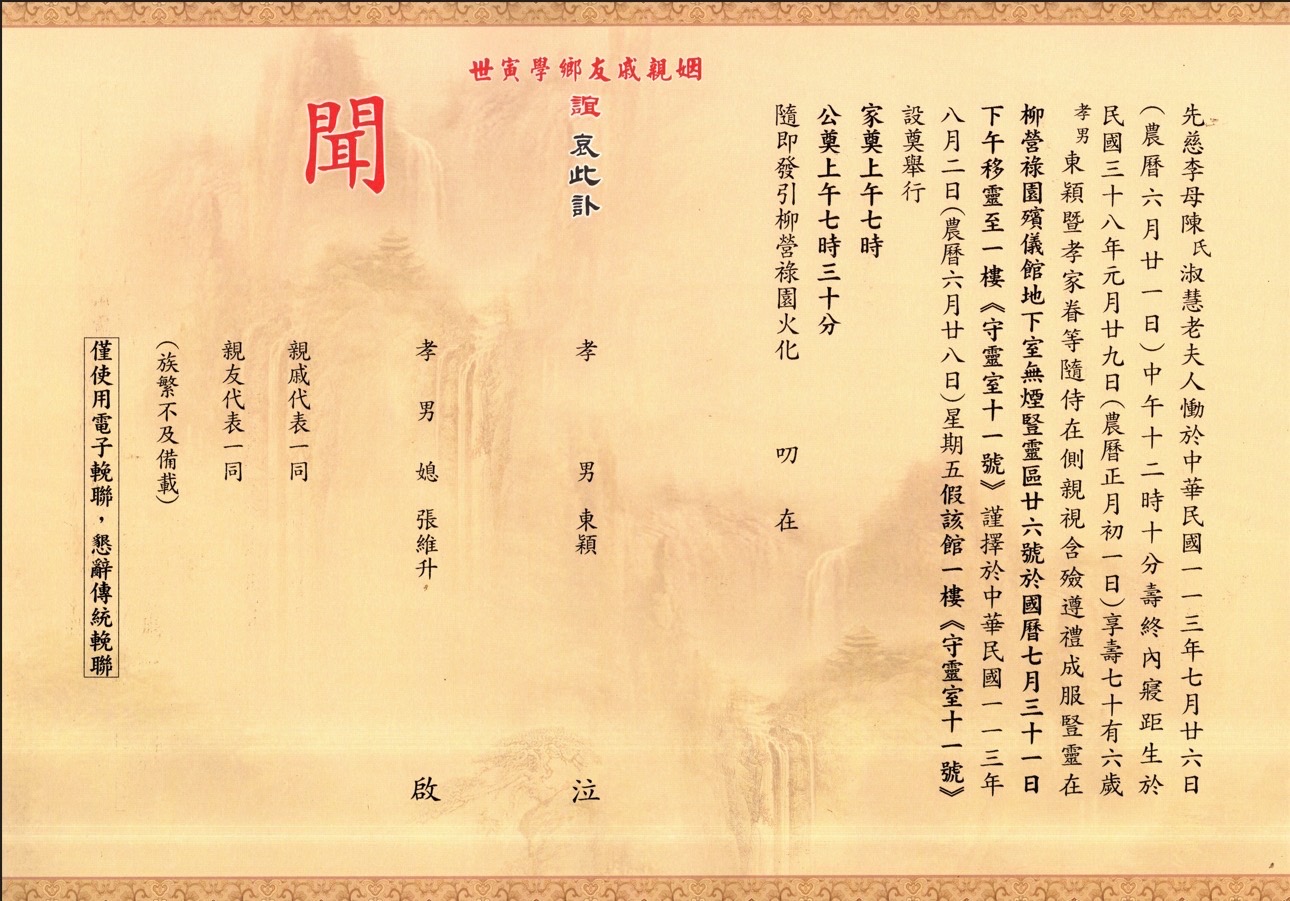 先慈李母陳氏淑慧老夫人慟於中華民國一一三年七月廿六日
(農曆六月廿一日)中午十二時十分壽終內寢距生於
民國三十八年元月廿九日(農曆正月初一日)享壽七十有六歲
孝男東穎暨孝家眷等隨侍在側親視含殮遵禮成服豎靈在
柳營祿園殯儀館地下室無煙豎靈區廿六號於國曆七月三十一日
下午移靈至一樓《守靈室十一號》謹擇於中華民國一一三年
八月二日(農曆六月廿八日)星期五假該館一樓《守靈室十一號》
設奠舉行
家奠上午七時
公奠上午七時三十分
隨即發引柳營祿園火化 叨在
姻親戚友鄉學寅世
誼 哀此訃
聞
孝 男 東穎 泣
孝 男 媳 張維升 啟
親戚代表一同
親友代表一同
(族繁不及備載)
僅使用電子輓聯,懇辭傳統輓聯